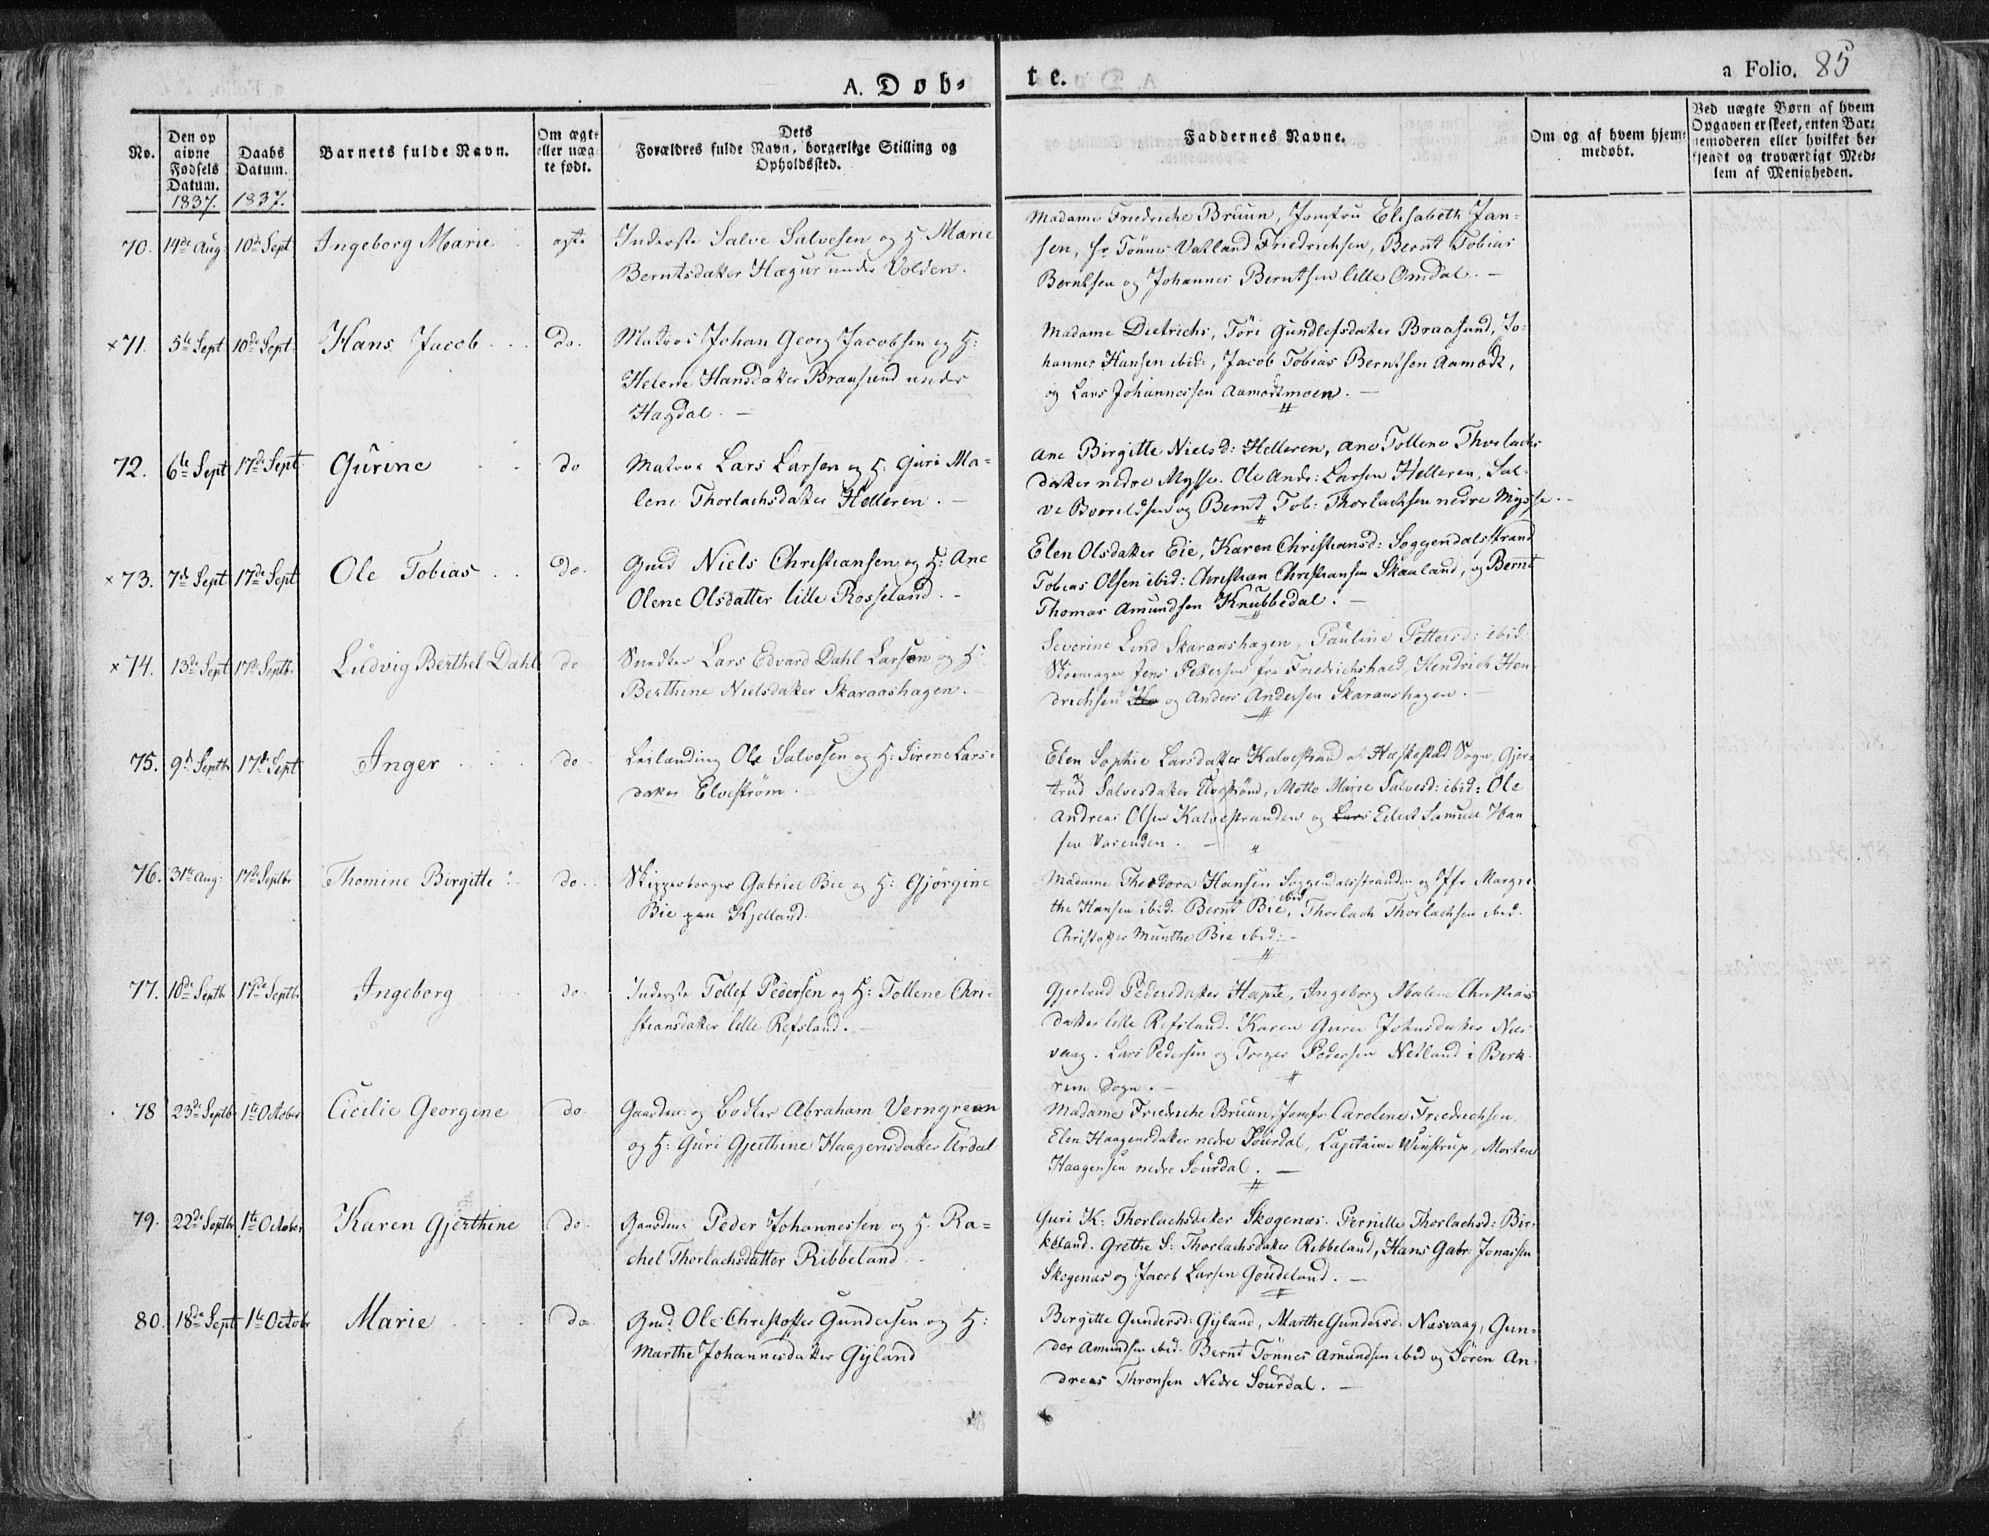 A. Døb-
te.
a Folio. 85
No.
Den op
givne
Fødsels
Datum.
1837.
Daabs
Datum.
1837.
Barnets fulde Navn.
Om ægte
eller uæg-
te født.
Dets
Forældres fulde Navn, borgerlige Stilling og
Opholdssted.
Faddernes Navne.
Om og af hvem hjem-
medøbt.
Ved uægte Børn af hvem
Opgaven er skeet, enten Bar-
nemoderen eller hvilket be-
kjendt og troværdigt Med-
lem af Menigheden.
70. 14de Aug 10de Sept Ingeborg Marie ægte
Inderste Salve Salvesen og H. Marie
Berntsdatter Hægur under Volden.
Madame Friedriche Bruun, Jomfru Elisabeth Jan-
sen, Hr Tönnes Vatland Friedrichsen, Bernt Tobias
Berntsen og Johannes Berntsen lille Omdal. -
× 71. 5te Sept 10de Sept Hans Jacob do.
Matros Johan Georg Jacobsen og H:
Helene Hansdatter Braasund under
Hagdal. -
Madame Dietrichs, Töri Gundlefsdatter Braasund, Jo-
hannes Hansen ibid:, Jacob Tobias Berntsen Aamodt,
og Lars Johannessen Aamodtmoen. -
72. 6te Sept 17de Sept Gurine do
Matros Lars Larsen og H: Guri Ma-
lene Thorlachsdatter Helleren. -
Ane Birgitte Nielsd: Helleren, Ane Tollene Thorlachs
datter nedre Mysse. Ole Andr: Larsen Helleren, Sal-
ve Boreildsen og Bernt Tob: Thorlachsen nedre Mysse. -
× 73. 7de Sept 17de Sept Ole Tobias do.
Gmd Niels Christiansen og H: Ane
Olene Olsdatter lille Rosseland. -
Elen Olsdatter Eie, Karen Christiansd: Soggendalsstrand
Tobias Olsen ibid: Christian Christiansen Skaaland, og Bernt
Thomas Amundsen Knubbedal. -
× 74. 13de Sept 17de Septb. Ludvig Berthel Dahl do
Snedker Lars Edvard Dahl Larsen og H:
Berthine Nielsdatter Skaraashagen. -
Severine Lind Skaraashagen, Pauline Pettersd: ibid.
Skoemager Jens Pettersen fra Friedrichshald, Hendrich Hen
drichsen og Anders Andersen Skaraashagen. -
75. 9de Septbr 17de Sept Inger do
Leilænding Ole Salvesen og H: Sirene Lars-
datter Elvestrøm.
Elen Sophie Larsdatter Kalvestrand af Hæskestad Sogn, Gjer-
trud Salvesdatter Elvestrøm, Mette Marie Salvesd: ibid: Ole
Andreas Olsen Kalvestranden og Lars Eilert Samuel Han
sen Varenden. -
76. 31te Aug: 17de Septbr Thomine Birgitte do.
Skipperborger Gabriel Bie og H: Gjørgine
Bie paa Kjelland.
Madame Theodora Hansen Soggendalsstranden og Jfr Margre-
the Hansen ibid. Bernt Bie ibid, Thorlach Thorlachsen ibid.
Christoffer Munthe Bie ibid: -
77. 10de Septbr 17de Septbr Ingeborg do.
Inderste Tollef Pedersen og H: Tollene Chri-
stiansdatter lille Refsland. -
Gjertrud Pedersdatter Hapte, Ingeborg Malene Christians
datter lille Refsland. Karen Gurie Johnsdatter Næs
vaag. Lars Pedersen og Torger Pedersen Netland i Birk-
rem Sogn. -
78 23de Septbr 1te October Cicilie Georgine do.
Gaardm: og Bødker Abraham Verngreen
og H: Guri Gjerthine Haagensdatter Urdal
Madame Friedriche Bruun, Jomfr Carolene Friedrichsen,
Elen Haagensdatter nedre Sourdal, Capitaine Winstrup, Morten
Haagensen nedre Sourdal. -
79. 22de Septbr 1te October Karen Gjerthine do.
Gaardm: Peder Johannessen og H. Ra-
chel Thorlachsdatter Ribbeland.
Guri K: Thorlachsdatter Skogenæs. Pernille Thorlachsd: Bir-
keland. Grethe S: Thorlachsdatter Ribbeland, Hans Gabr: Jonassen
Skogenæs og Jacob Larsen Goudeland. -
80. 18de Sept 1te Octobr Marie do
Gmd. Ole Christoffer Gundersen og H:
Marthe Johannesdatter Gyland
Birgitte Gundersd: Gyland, Marthe Gundersd: Næsvaag, Gun-
der Amundsen ibid. Bernt Tönnes Amundsen ibid og Sören An-
dreas Thronsen Nedre Sourdal. -